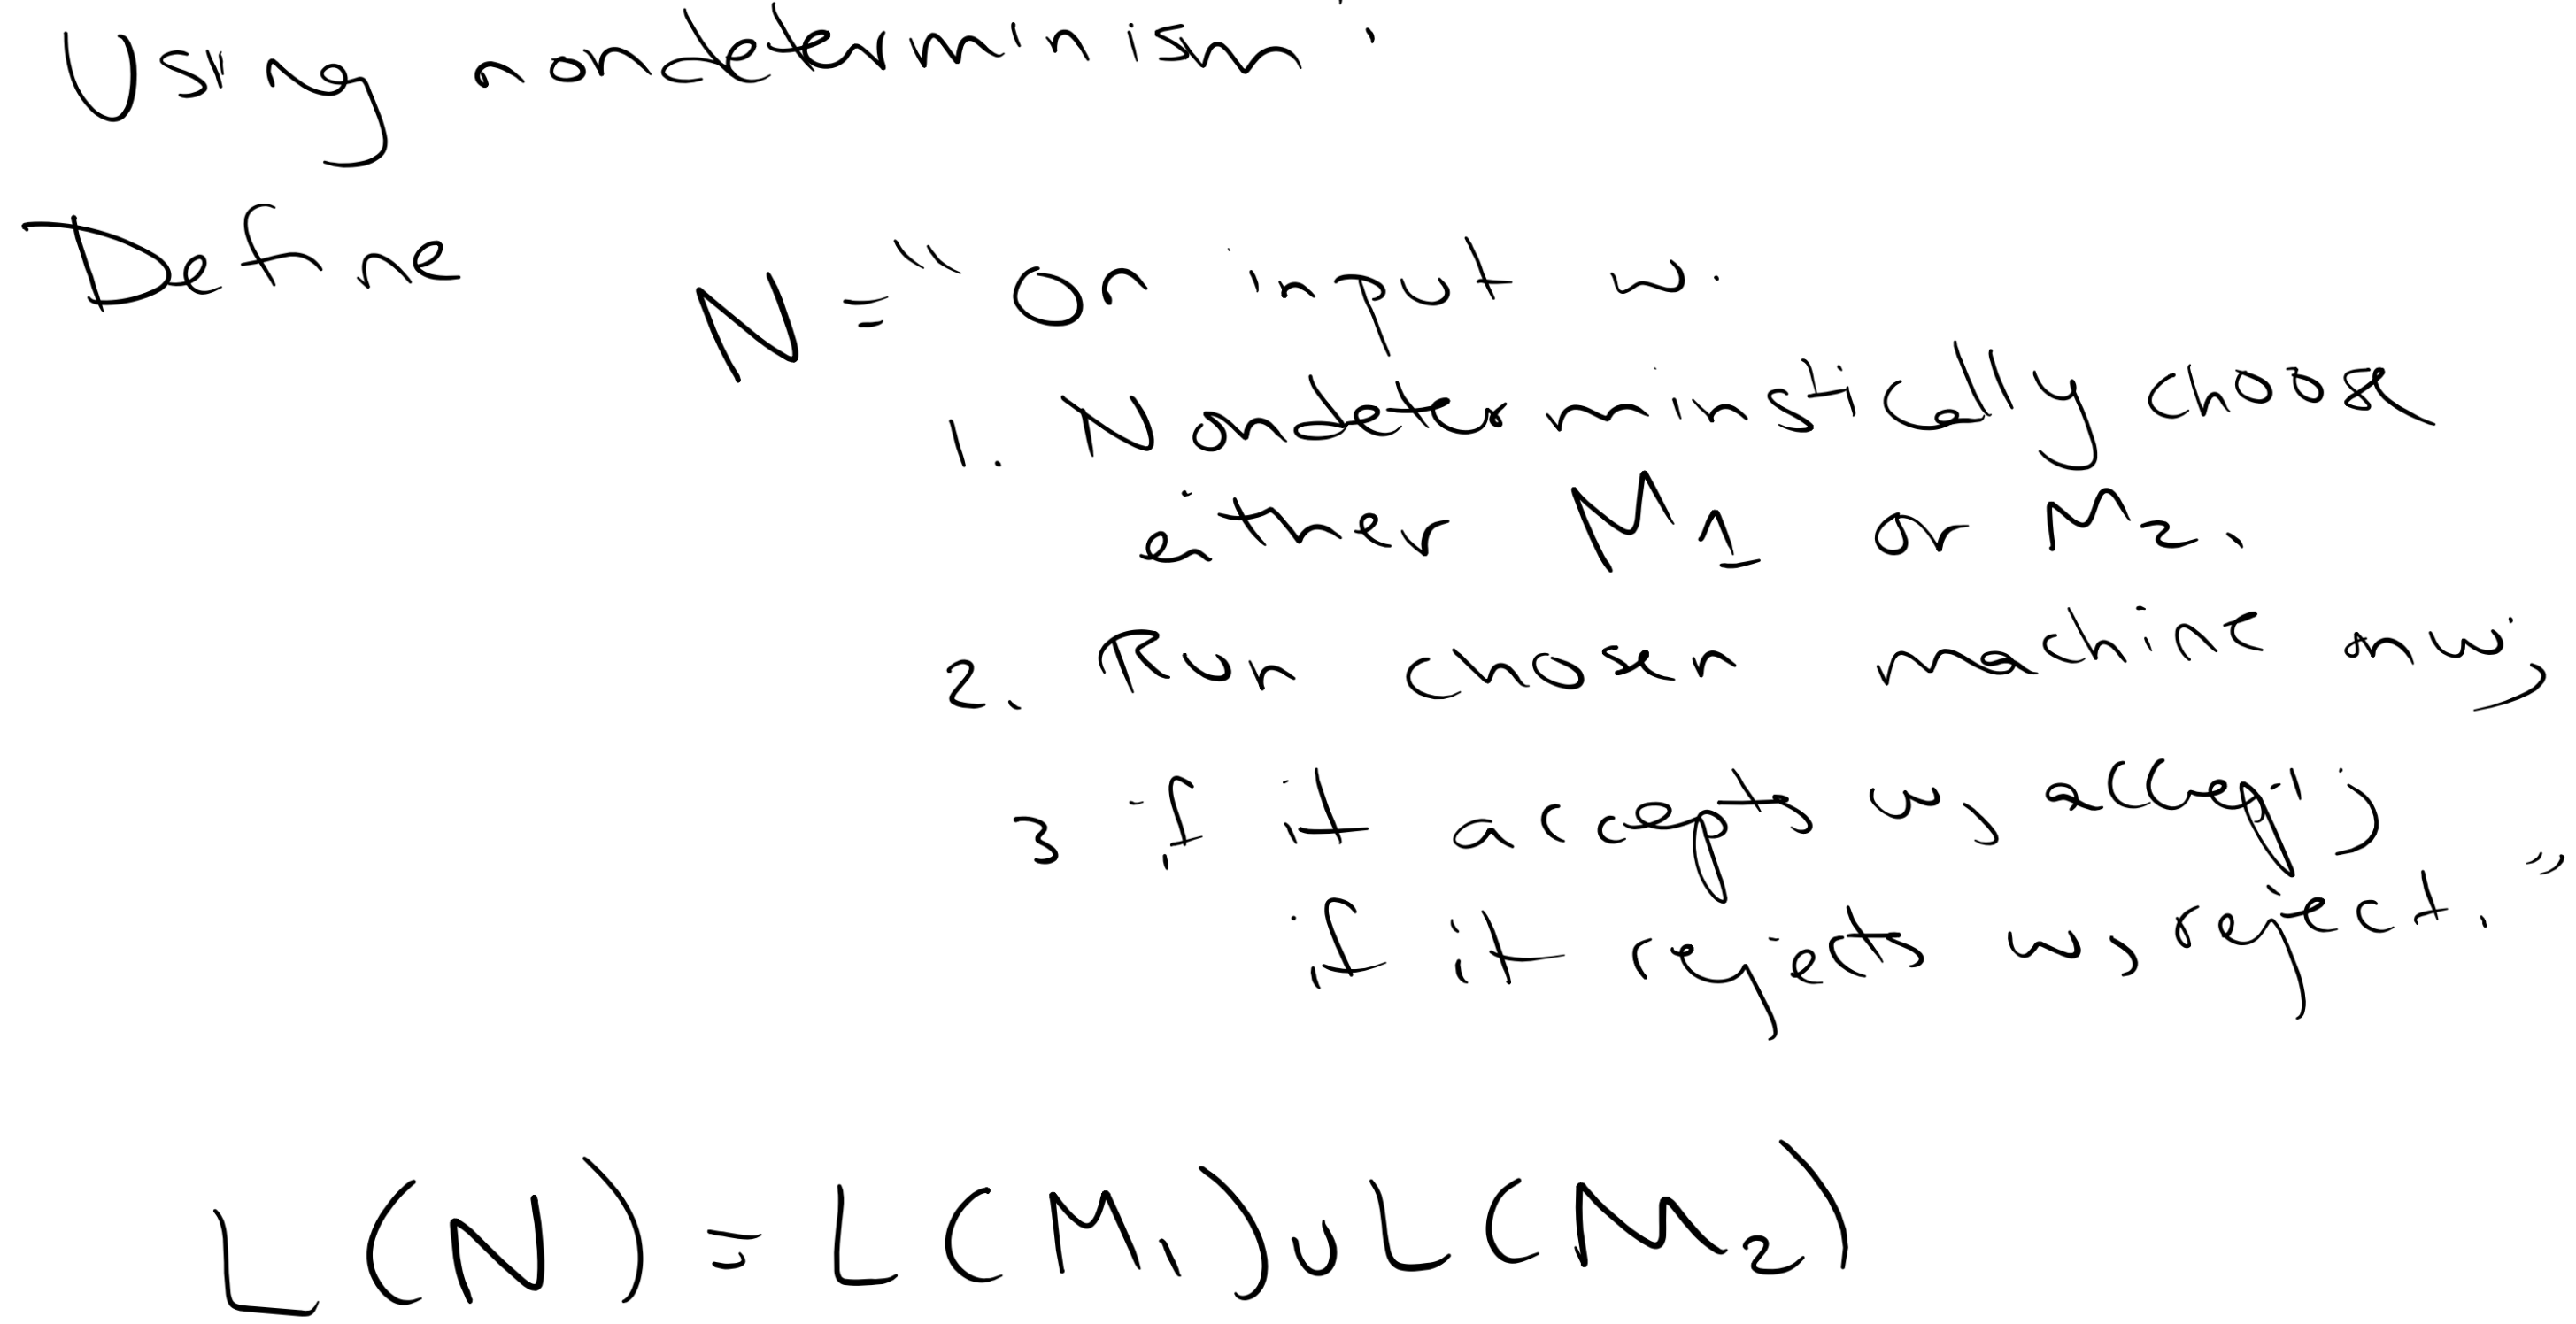 Using nondeterminism:
Define
N = "On input w:
1. Nondeterminstically choose
either M1 or M2.
2. Run chosen machine on w;
3 if it accepts w, accept;
if it rejects w, reject."
L(N) = L(M1) ∪ L(M2)